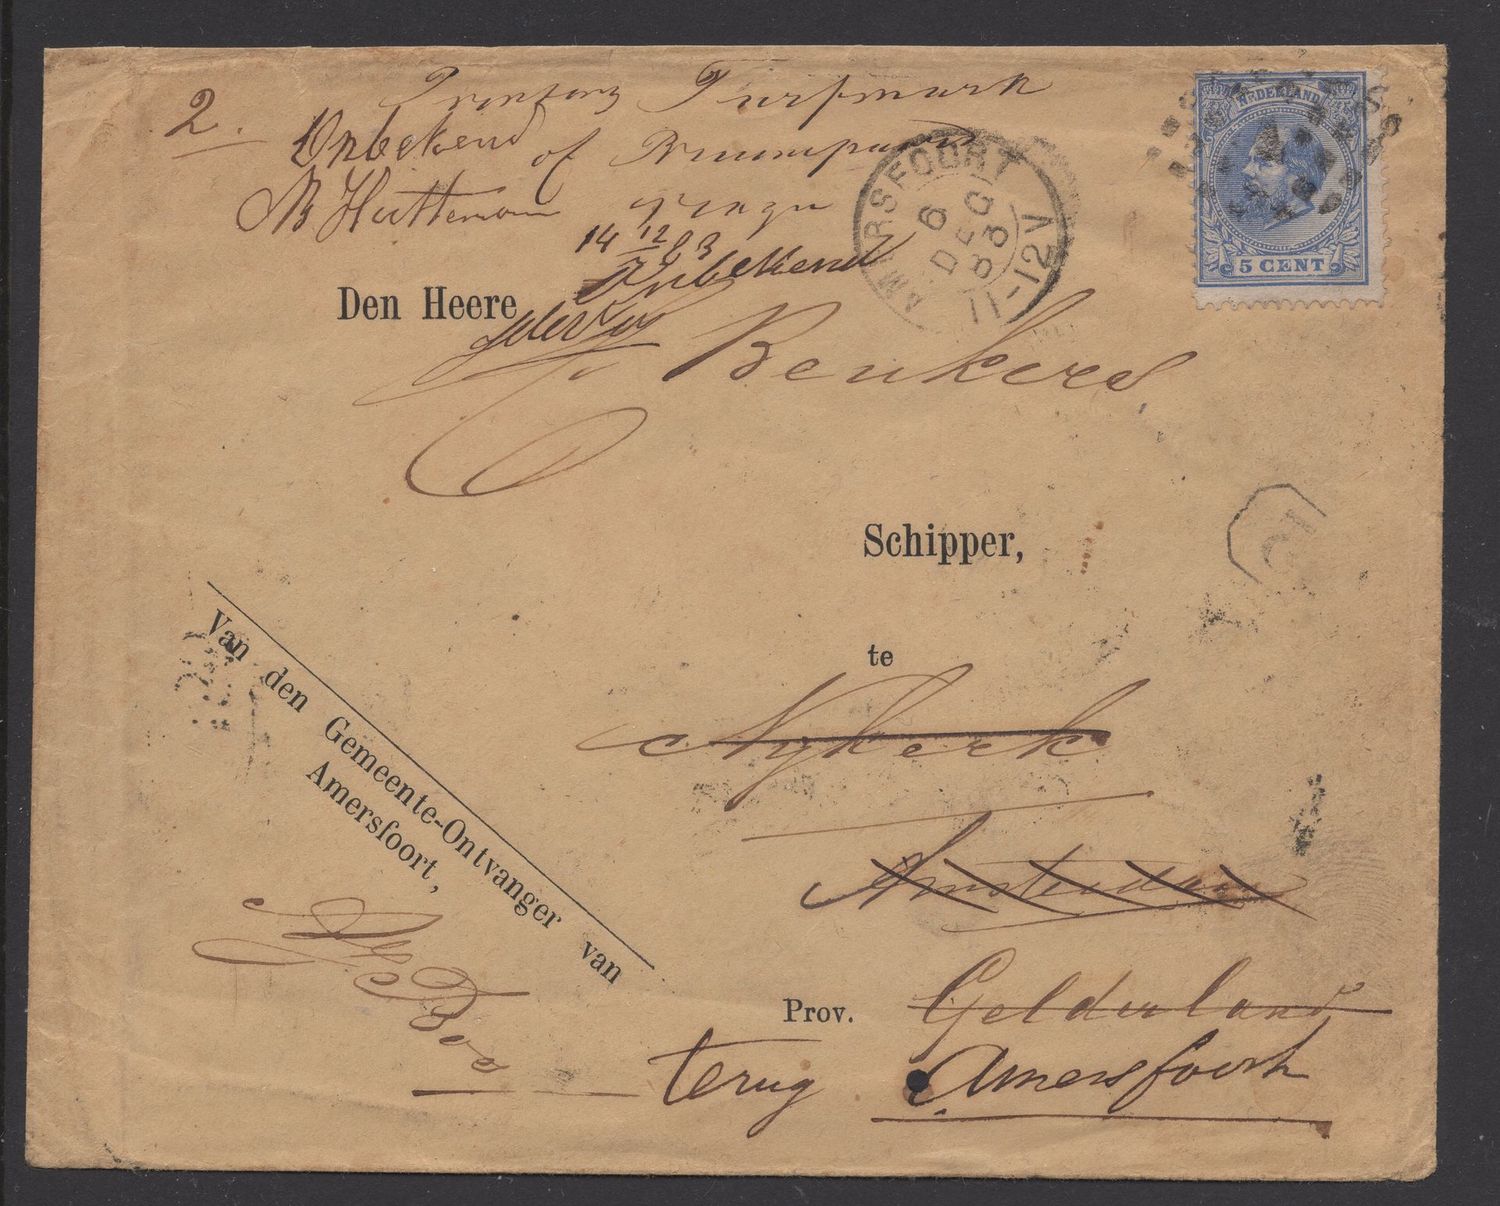 2.
Turfmark
Onbekend of
14 12 83
Onbekend
Den Heere
Beukers
Schipper,
te
Nykerk
Amsterdam
Prov. Gelderland
terug Amersfoort
Van den Gemeente-Ontvanger van
Amersfoort,
NEDERLAND
5 CENT
AMERSFOORT
6
DEC
83
11-12V